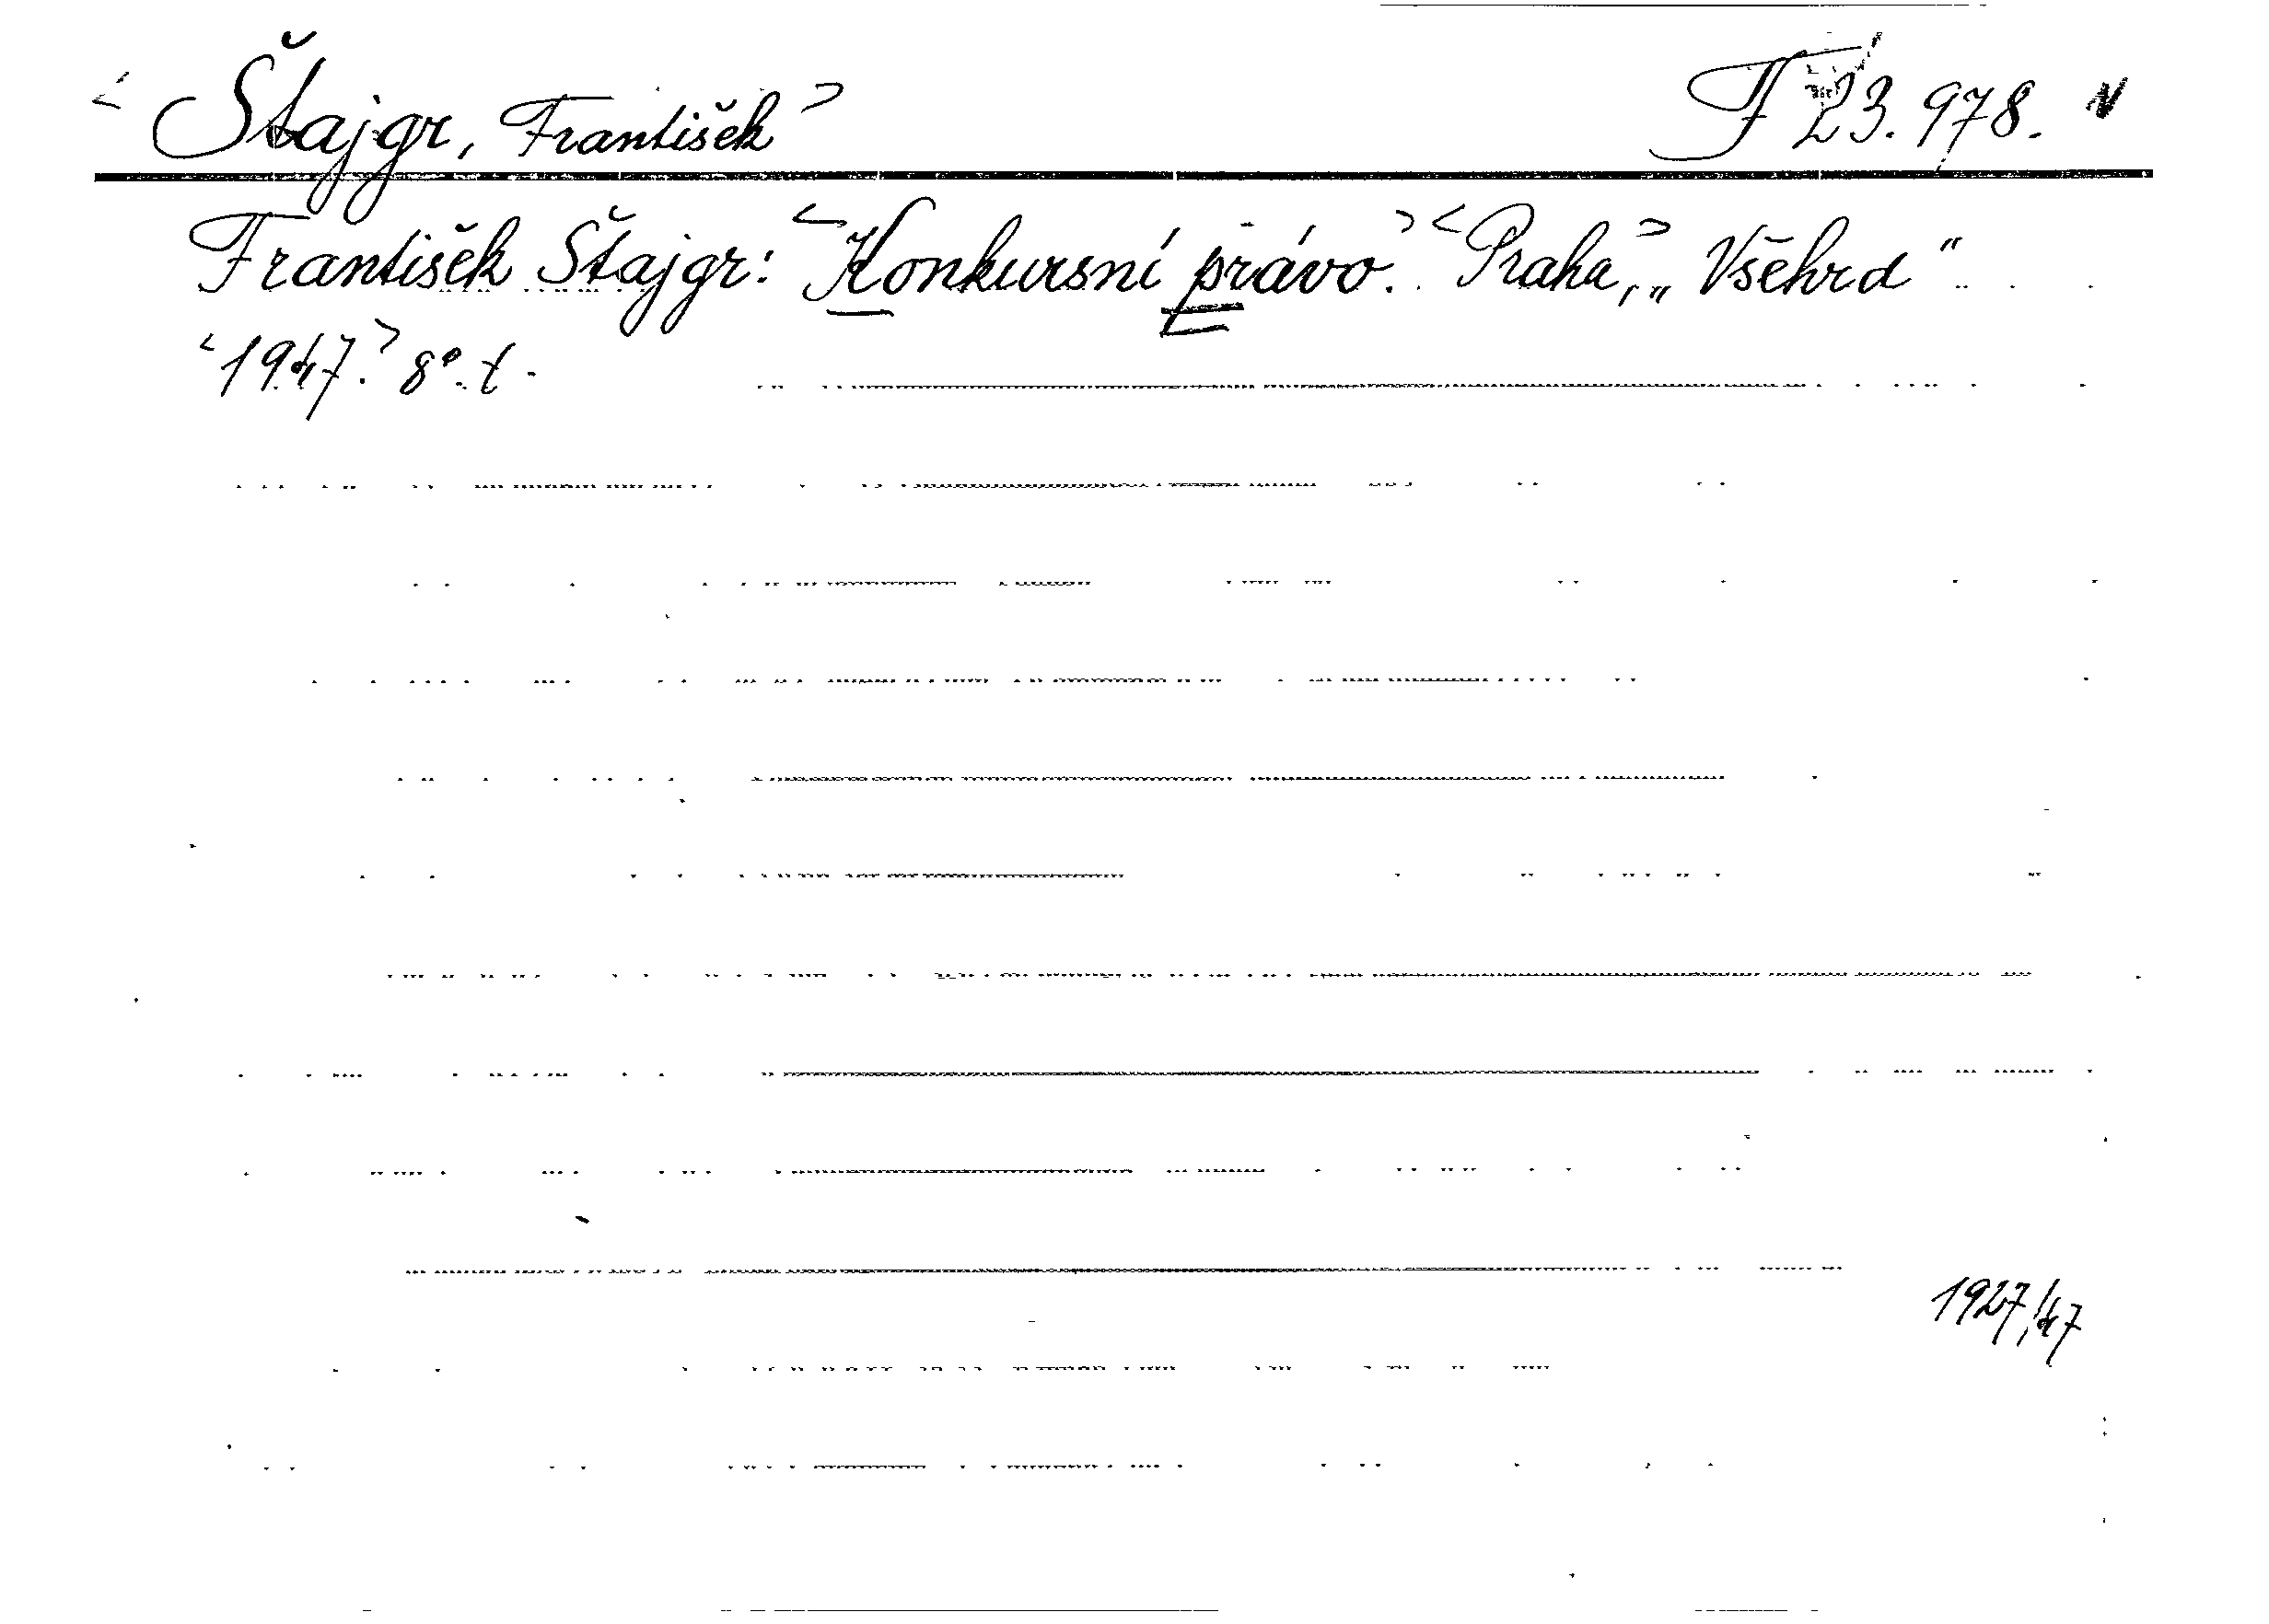 <Štajgr, František> F 23.978. N
František Štajgr: <Konkursní právo.> <Praha,> „Všehrd“
<1947.> 8°. t.
1927/47